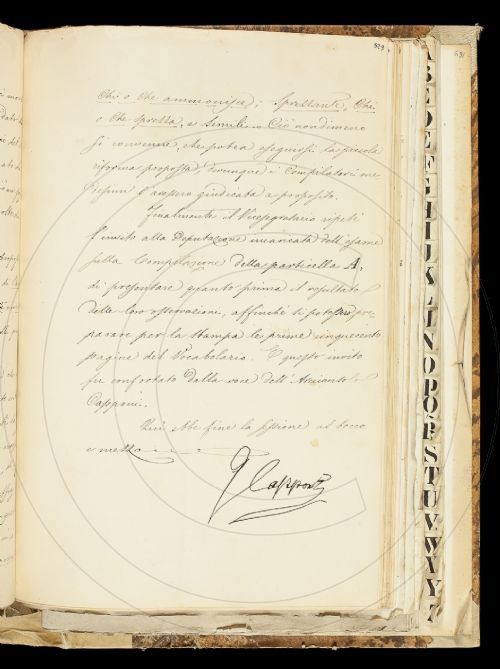 529.
Chi o che ammonisce; Sprezzante, Chi
o Che sprezza, e Simili. Ciò nondimeno
si convenne, che potea eseguirsi la piccola
riforma proposta, dovunque i Compilatori me-
desimi l'avessero giudicata a proposito.
Finalmente il Vicesegretario ripetè
l'invito alla Deputazione incaricata dell'esame
sulla Compilazione della particella A,
di presentare quanto prima il resultato
delle loro osservazioni, affinchè si potesser pre-
parare per la Stampa le prime cinquecento
pagine del Vocabolario. E questo invito
fu confortato dalla voce dell'Arciconsolo
Capponi.
Qui ebbe fine la sessione al tocco
e mezzo.
G Capponi
A
B
C
D
E
F
G
H
I
J
K
L
M
N
O
P
Q
R
S
T
U
V
W
X
Y
Z